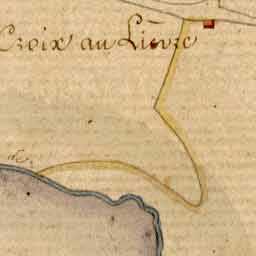 Croix au Lièvre
de